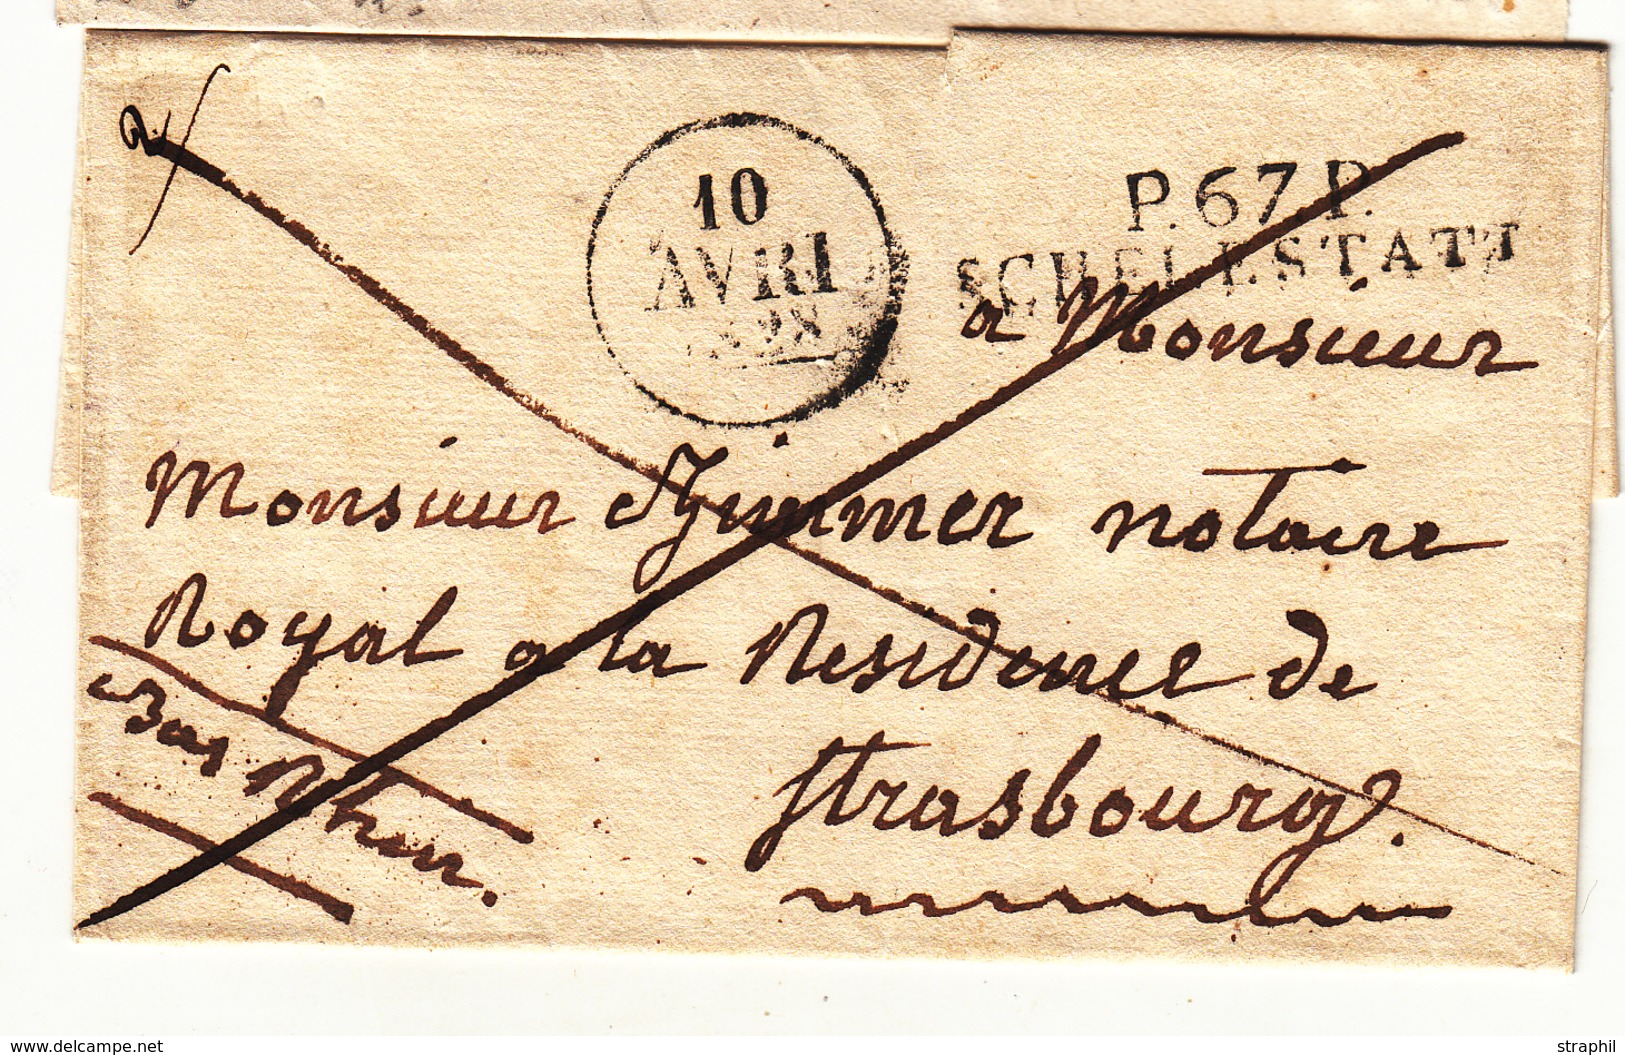 2
10
AVRI
1828
P.67.P.
SCHELESTATT
a Monsieur
Monsieur Zimmer notaire
Royal a la Residence de
Strasbourg.
Bas Rhin.
www.delcampe.net
straphil